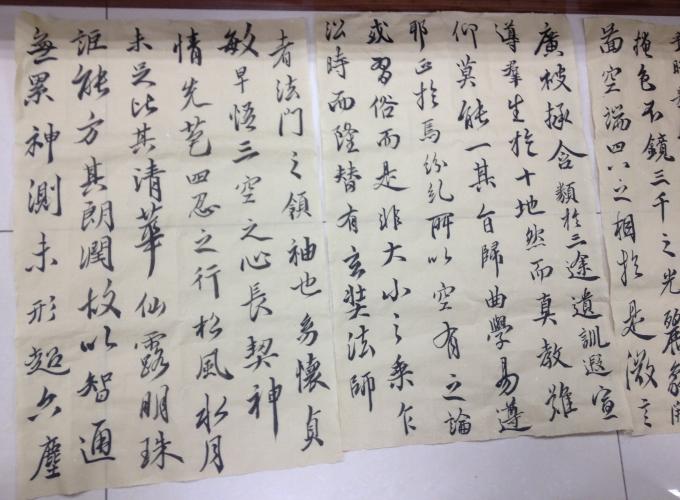 掩色不鏡三千之光麗象開
啚空端四八之相於是微言
廣被拯含類於三途遺訓遐宣
導羣生於十地然而真教難
仰莫能一其旨歸曲學易遵
耶正於焉紛糺所以空有之論
或習俗而是非大小之乘乍
沿時而隆替有玄奘法師
者法門之領袖也幼懷貞
敏早悟三空之心長契神
情先苞四忍之行松風水月
未足比其清華仙露明珠
詎能方其朗潤故以智通
無累神測未形超六塵